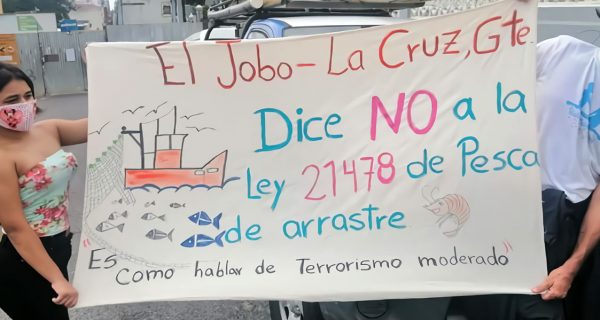 El Jobo - La Cruz, Gte.
Dice NO a la
Ley 21478 de Pesca
de arrastre
"Es
Como hablar de Terrorismo moderado"